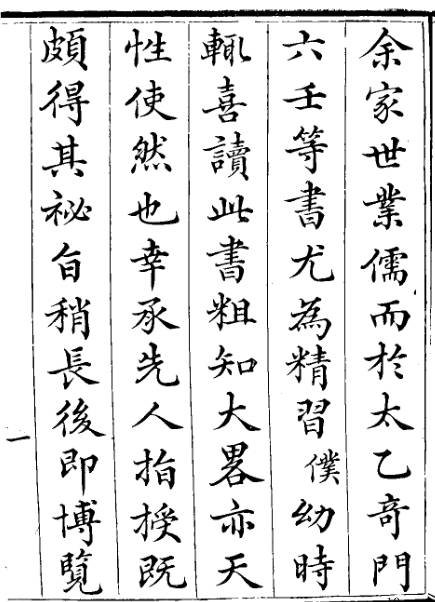 余家世業儒而於太乙竒門
六壬等書尤為精習僕幼時
輒喜讀此書粗知大畧亦天
性使然也幸承先人指授既
頗得其祕旨稍長後即博覽
一